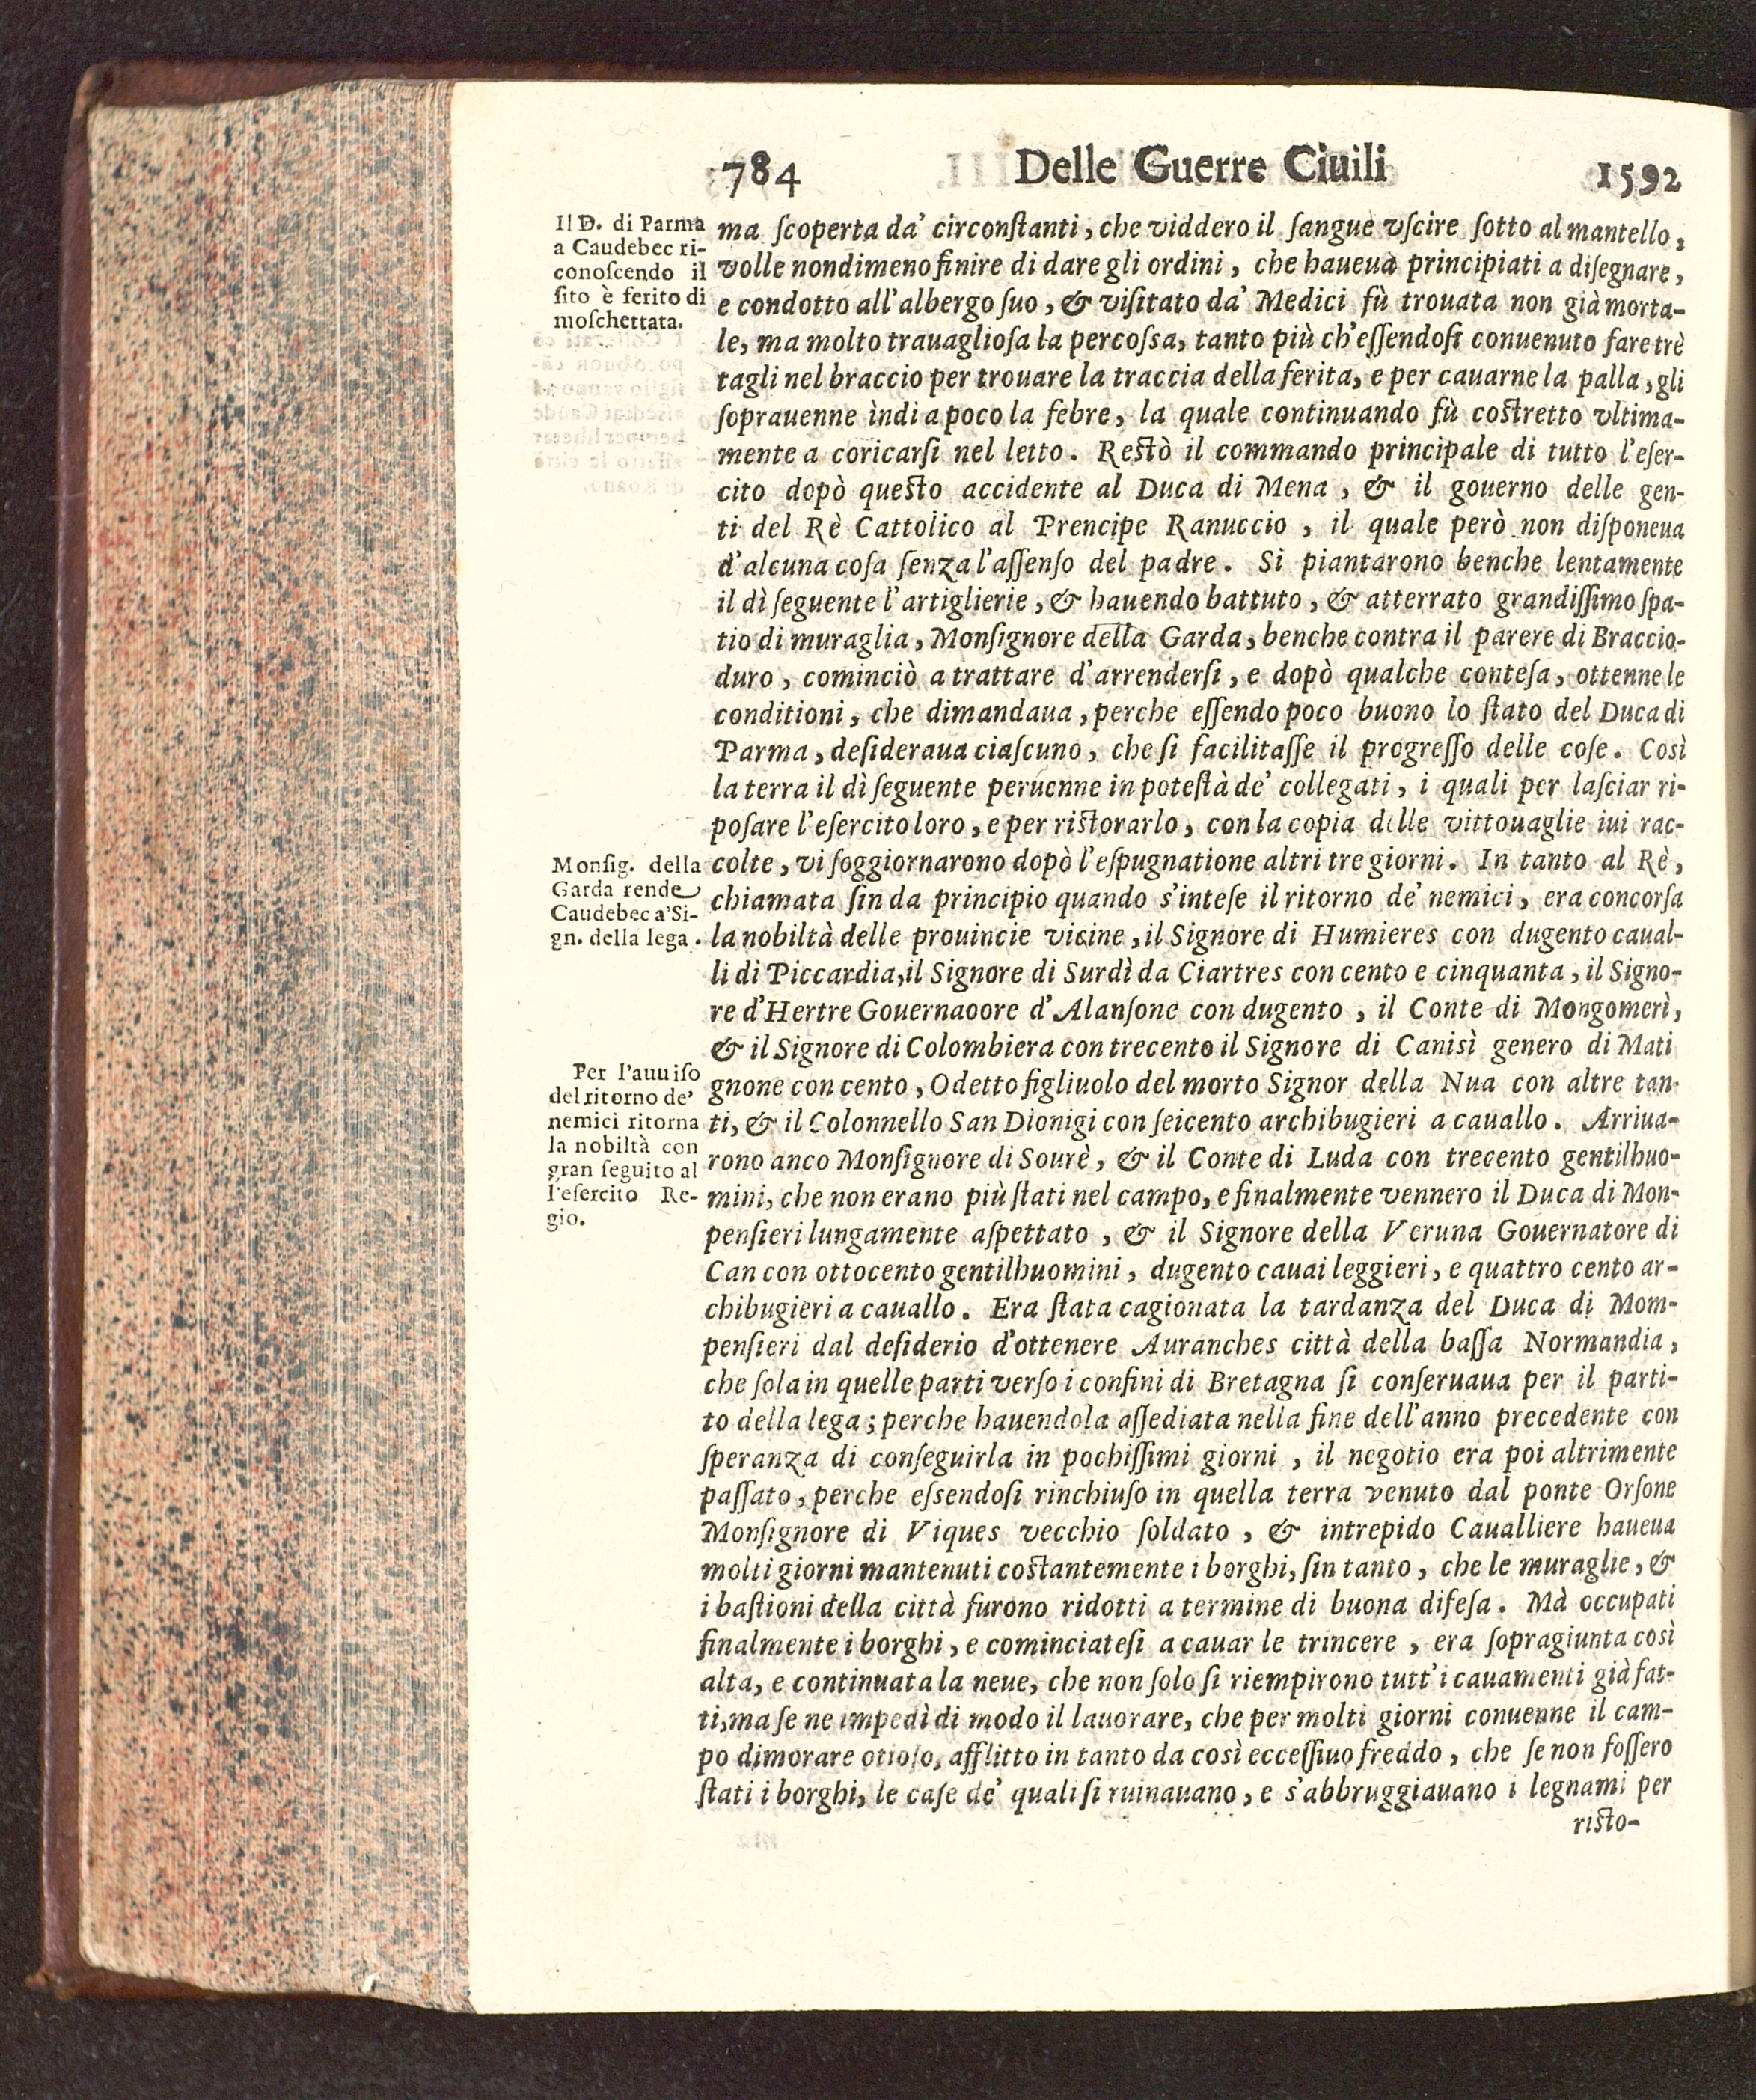 784 Delle Guerre Ciuili 1592
Il D. di Parma
a Caudebec ri-
conoſcendo il
ſito è ferito di
moſchettata.
ma ſcoperta da' circonſtanti, che viddero il ſangue vſcire ſotto al mantello,
volle nondimeno finire di dare gli ordini, che haueua principiati a diſegnare,
e condotto all'albergo ſuo, & viſitato da' Medici fù trouata non già morta-
le, ma molto trauaglioſa la percoſsa, tanto più ch'eſſendoſi conuenuto fare trè
tagli nel braccio per trouare la traccia della ferita, e per cauarne la palla, gli
ſoprauenne ìndi a poco la febre, la quale continuando fù costretto vltima-
mente a coricarſi nel letto. Restò il commando principale di tutto l'eſer-
cito dopò questo accidente al Duca di Mena, & il gouerno delle gen-
ti del Rè Cattolico al Prencipe Ranuccio, il quale però non diſponeua
d'alcuna coſa ſenza l'aſſenſo del padre. Si piantarono benche lentamente
il dì ſeguente l'artiglierie, & hauendo battuto, & atterrato grandiſſimo ſpa-
tio di muraglia, Monſignore della Garda, benche contra il parere di Braccio-
duro, cominciò a trattare d'arrenderſi, e dopò qualche conteſa, ottenne le
conditioni, che dimandaua, perche eſſendo poco buono lo ſtato del Duca di
Parma, deſideraua ciaſcuno, che ſi facilitaſſe il progreſſo delle coſe. Così
la terra il dì ſeguente peruenne in poteſtà de' collegati, i quali per laſciar ri-
poſare l'eſercito loro, e per ristorarlo, con la copia delle vittouaglie iui rac-
Monſig. della
Garda rende
Caudebec a' Si-
gn. della lega.
colte, vi ſoggiornarono dopò l'eſpugnatione altri tre giorni. In tanto al Rè,
chiamata ſin da principio quando s'inteſe il ritorno de' nemici, era concorſa
la nobiltà delle prouincie vicine, il Signore di Humieres con dugento caual-
li di Piccardia, il Signore di Surdì da Ciartres con cento e cinquanta, il Signo-
re d'Hertre Gouernaoore d'Alanſone con dugento, il Conte di Mongomerì,
& il Signore di Colombiera con trecento il Signore di Canisì genero di Mati
Per l'auuiſo
del ritorno de'
nemici ritorna
la nobiltà con
gran ſeguito al
l'eſercito Re-
gio.
gnone con cento, Odetto figliuolo del morto Signor della Nua con altre tan-
ti, & il Colonnello San Dionigi con ſeicento archibugieri a cauallo. Arriua-
rono anco Monſignore di Sourè, & il Conte di Luda con trecento gentilhuo-
mini, che non erano più ſtati nel campo, e finalmente vennero il Duca di Mon-
penſieri lungamente aſpettato, & il Signore della Veruna Gouernatore di
Can con ottocento gentilhuomini, dugento cauai leggieri, e quattro cento ar-
chibugieri a cauallo. Era ſtata cagionata la tardanza del Duca di Mom-
penſieri dal deſiderio d'ottenere Auranches città della baſſa Normandia,
che ſola in quelle parti verſo i confini di Bretagna ſi conſeruaua per il parti-
to della lega; perche hauendola aſſediata nella fine dell'anno precedente con
ſperanza di conſeguirla in pochiſſimi giorni, il negotio era poi altrimente
paſſato, perche eſsendoſi rinchiuſo in quella terra venuto dal ponte Orſone
Monſignore di Viques vecchio ſoldato, & intrepido Caualliere haueua
molti giorni mantenuti costantemente i borghi, ſin tanto, che le muraglie, &
i baſtioni della città furono ridotti a termine di buona difeſa. Mà occupati
finalmente i borghi, e cominciateſi a cauar le trincere, era ſopragiunta così
alta, e continuata la neue, che non ſolo ſi riempirono tutt'i cauamenti già fat-
ti, ma ſe ne impedì di modo il lauorare, che per molti giorni conuenne il cam-
po dimorare otioſo, afflitto in tanto da così ecceſſiuo freddo, che ſe non foſſero
ſtati i borghi, le caſe de' quali ſi ruinauano, e s'abbruggiauano i legnami per
risto-